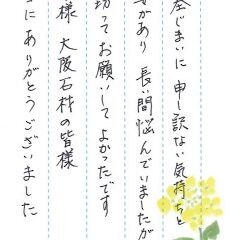 じまいに 申し訳ない気持ちと
があり 長い間悩んでいましたが
切ってお願いしてよかったです
様 大阪石材の皆様
にありがとうございました